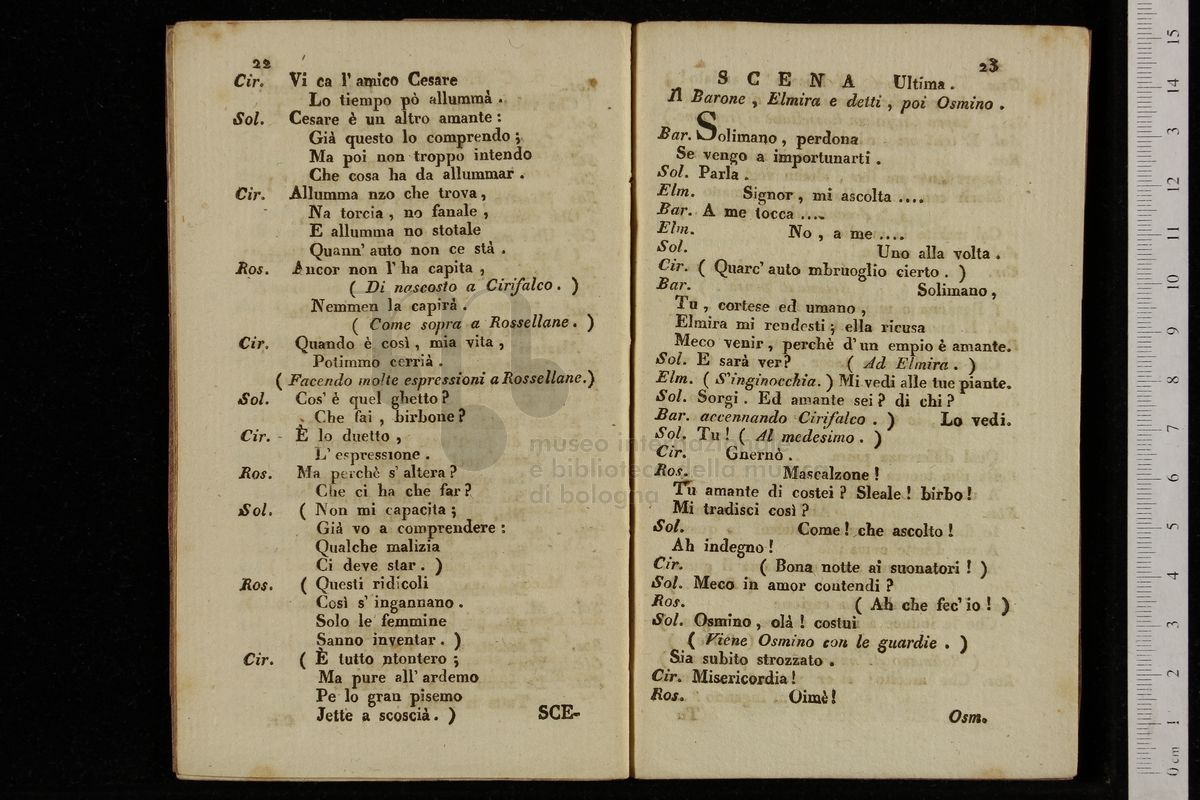 22
Cir. Vi ca l' amico Cesare
Lo tiempo pò allummà .
Sol. Cesare è un altro amante :
Già questo lo comprendo ;
Ma poi non troppo intendo
Che cosa ha da allummar .
Cir. Allumma nzo che trova ,
Na torcia , no fanale ,
E allumma no stotale
Quann' auto non ce stà .
Ros. Ancor non l' ha capita ,
( Di nascosto a Cirifalco . )
Nemmen la capirà .
( Come sopra a Rossellane . )
Cir. Quando è così , mia vita ,
Potimmo cerrià .
( Facendo molte espressioni a Rossellane. )
Sol. Cos' è quel ghetto ?
Che fai , birbone ?
Cir. - È lo duetto ,
L' espressione .
Ros. Ma perchè s' altera ?
Che ci ha che far ?
Sol. ( Non mi capacita ;
Già vo a comprendere :
Qualche malizia
Ci deve star . )
Ros. ( Questi ridicoli
Così s' ingannano .
Solo le femmine
Sanno inventar . )
Cir. ( È tutto ntontero ;
Ma pure all' ardemo
Pe lo gran pisemo
Jette a scoscià . )
SCE-
23
SCENA Ultima .
Il Barone , Elmira e detti , poi Osmino .
Bar. Solimano , perdona
Se vengo a importunarti .
Sol. Parla .
Elm. Signor , mi ascolta ....
Bar. A me tocca ....
Elm. No , a me ....
Sol. Uno alla volta .
Cir. ( Quarc' auto mbruoglio cierto . )
Bar. Solimano ,
Tu , cortese ed umano ,
Elmira mi rendesti ; ella ricusa
Meco venir , perchè d' un empio è amante.
Sol. E sarà ver ? ( Ad Elmira . )
Elm. ( S'inginocchia. ) Mi vedi alle tue piante.
Sol. Sorgi . Ed amante sei ? di chi ?
Bar. accennando Cirifalco . ) Lo vedi.
Sol. Tu ! ( Al medesimo . )
Cir. Gnernò .
Ros. Mascalzone !
Tu amante di costei ? Sleale ! birbo !
Mi tradisci così ?
Sol. Come ! che ascolto !
Ah indegno !
Cir. ( Bona notte ai suonatori ! )
Sol. Meco in amor contendi ?
Ros. ( Ah che fec' io ! )
Sol. Osmino , olà ! costui
( Viene Osmino con le guardie . )
Sia subito strozzato .
Cir. Misericordia !
Ros. Oimè !
Osm.
museo internazionale
e biblioteca della musica
di bologna
0 cm 1 2 3 4 5 6 7 8 9 10 11 12 13 14 15